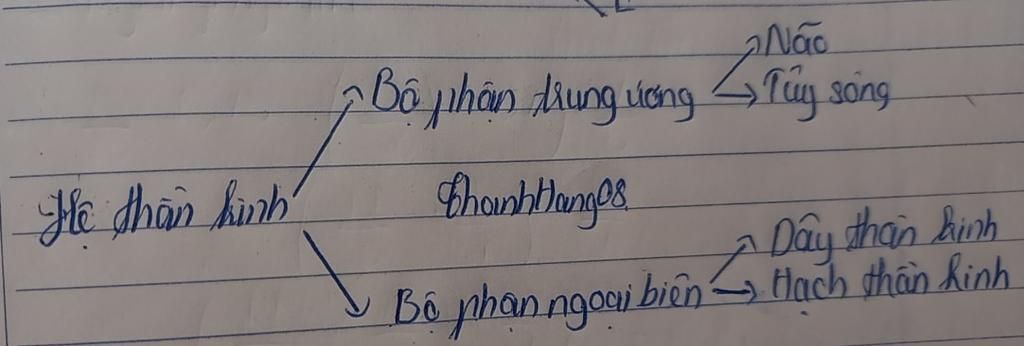 Não
Bộ phận trung ương
Tủy sống
Hệ thần kinh
ThanhHang08
Dây thần kinh
Bộ phận ngoại biên
Hạch thần kinh